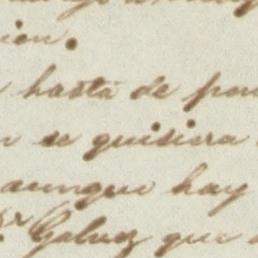 ion.
hasta de
se quisiera
aunque hay
Sr Galvez que